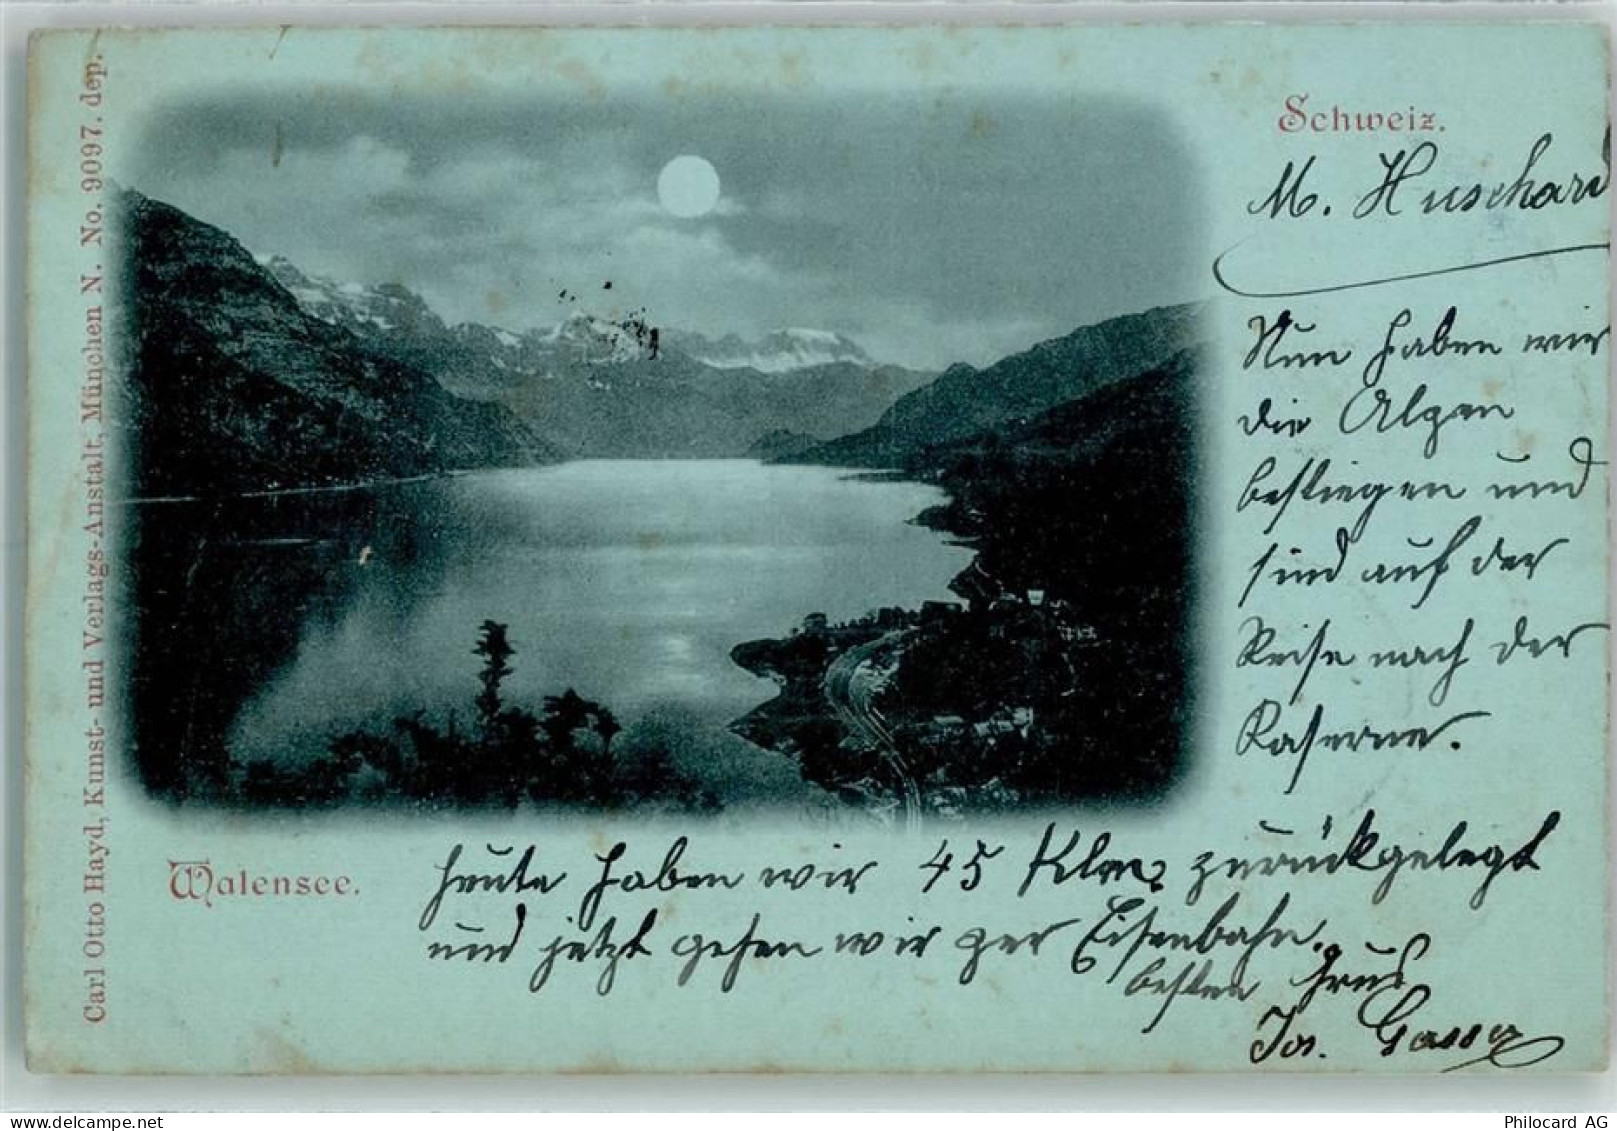 Carl Otto Hayd, Kunst- und Verlags-Anstalt, München N. No. 9097. dep.
Schweiz.
M. Huschard
Nun haben wir
die Alpen
bestiegen und
sind auf der
Reise nach der
Kaserne.
Walensee.
heute haben wir 45 Klm. zurückgelegt
und jetzt gehen wir per Eisenbahn.
besten Grus
Jos. Gasser
Philocard AG